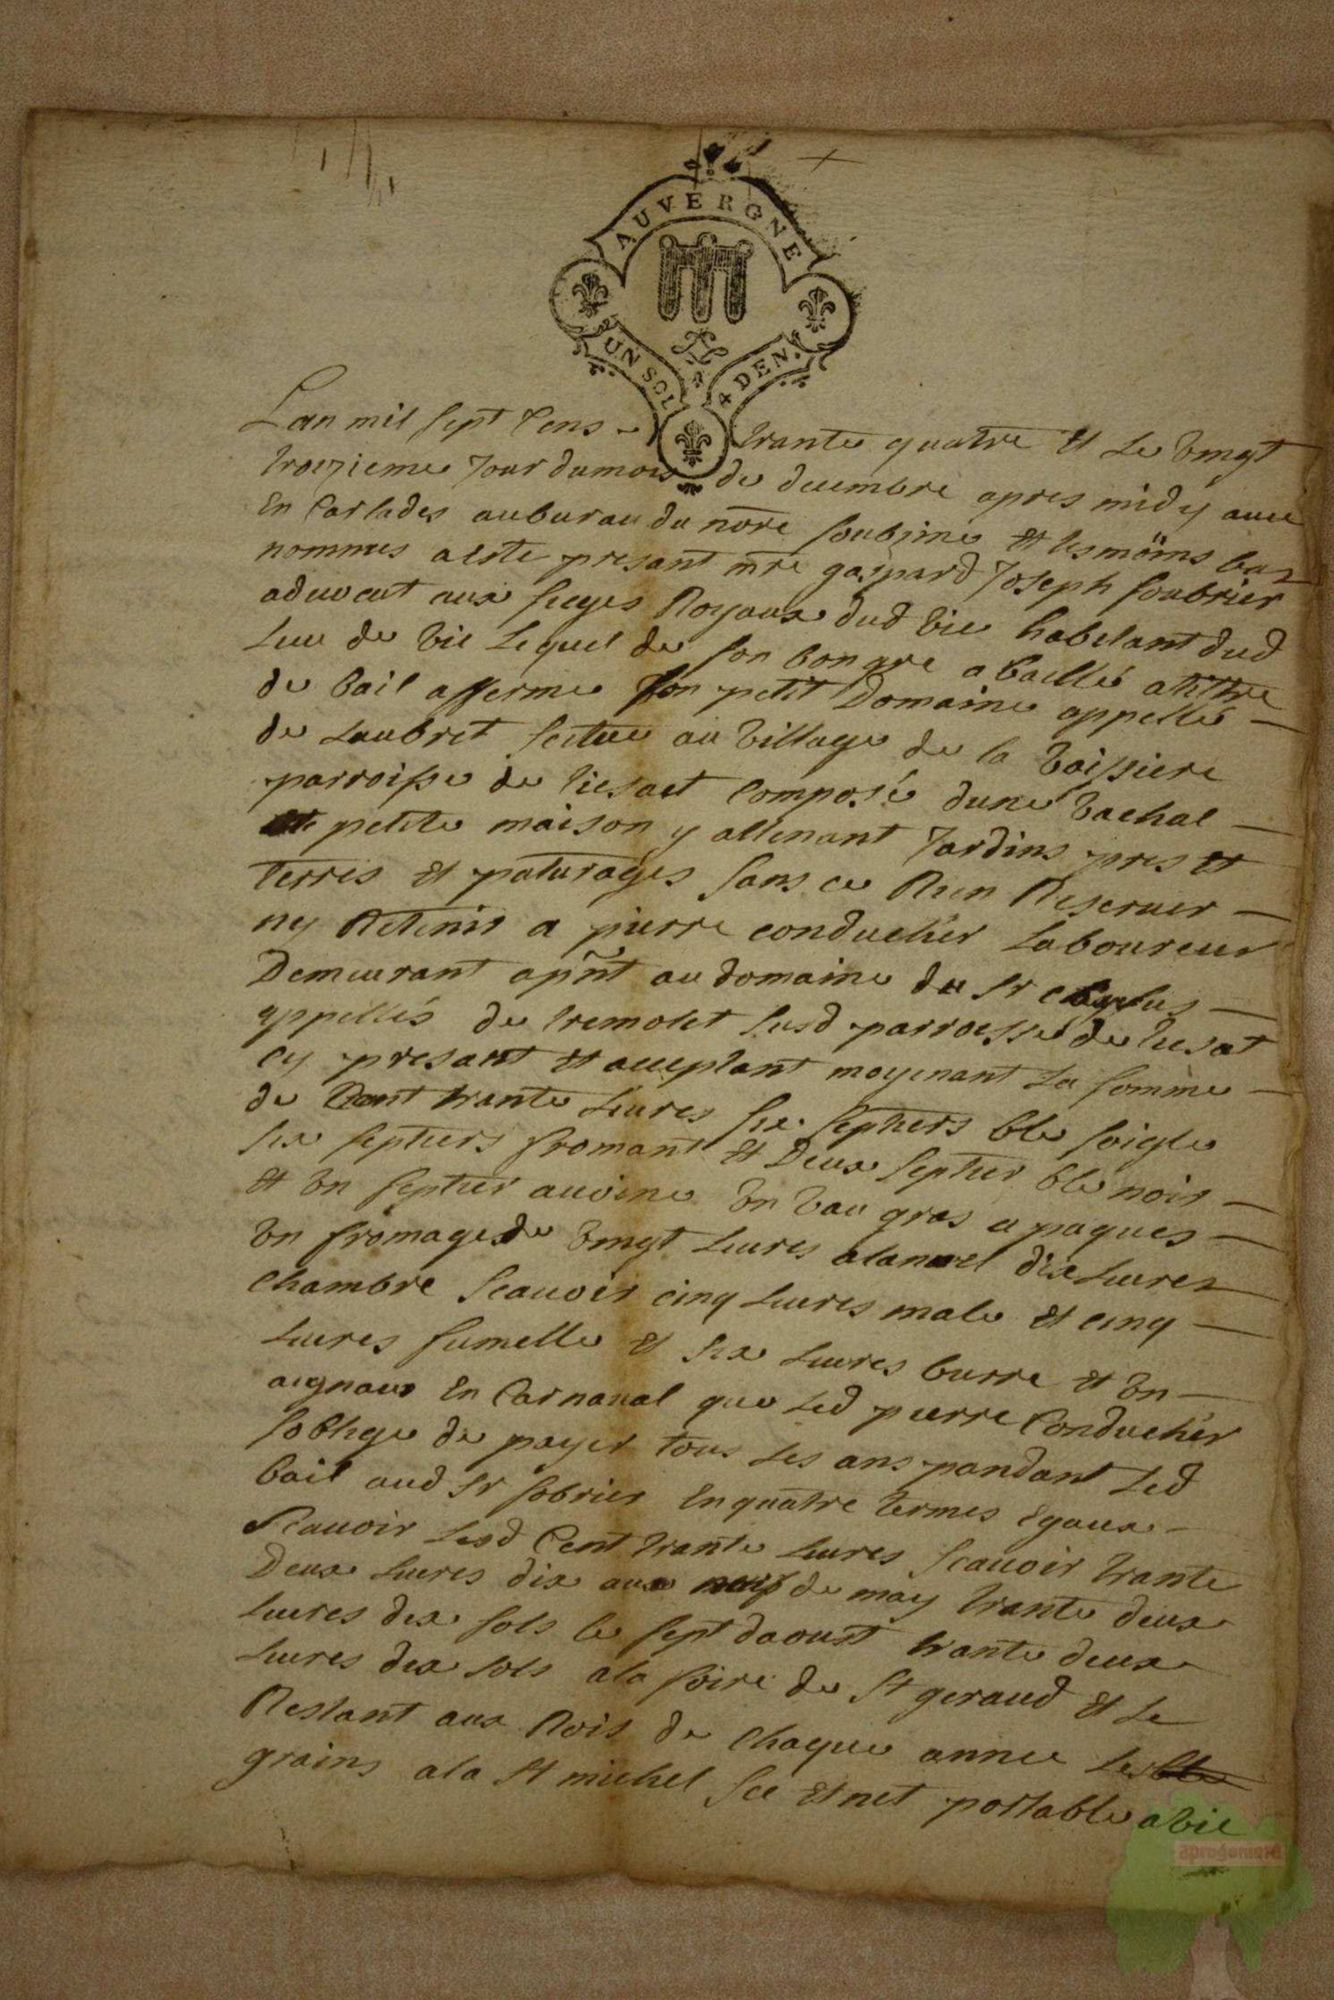 AUVERGNE
UN SOL 4 DEN.
Lan mil sept Cens trante quatre Et Le Vingt
troizieme Jour du mois de decembre apres midy a vic
En Carlades au bureau du nore soubsine Et tesmoins bas
nommes a este presant mre gaspard Joseph soubrier
aduocat aux sieges Royaux dud Vic habitant dud
Lieu de Vic Lequel de son bon gre a baillé a tiltre
de bail afferme son petit Domaine appellé
de Laubret scitue au Village de la Vaissiere
parroisse de Viesact Composé dune Vachal
petite maison y attenant Jardins pres et
terres Et paturages sans ce Rien Reseruer
ny Retenir a pierre conduchér Laboureur
Demeurant apñt au domaine du Sr
appellés de tremolet susd parroisse de
cy presant Et aceptant moyenant La somme
de Cent trante Liures six septiers ble soigle
six septiers fromant Et Deux septier ble noir
Et Vn septier auoine Vn Vau gras a paques
Vn fromage de Vingt Liures dix Liures
Chambre scauoir cinq Liures male Et cinq
Liures fumelle Et six Liures burre Et Vn
aignaux En Carnaual que Led pierre Conduchér
soblige de payer tous Les ans pandant Led
bail aud Sr sobrier En quatre termes Egaux
Scauoir Lesd Cent trante Liures scauoir trante
Deux Liures dix aux de may trante deux
Liures dix sols le sept daoust trante deux
Liures dix sols a la foire de St geraud Et Le
Restant aux Rois de Chaque annee Les
grains a la St michel sce Et net portable a Vic
aprogemere